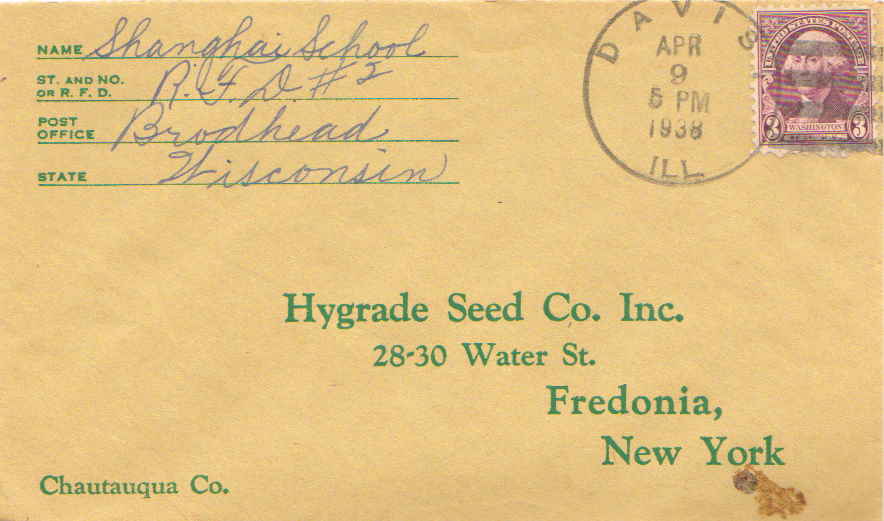 NAME Shanghai School
ST. AND NO.
OR R. F. D. R.F.D. #2
POST
OFFICE Brodhead
STATE Wisconsin
DAVIS
APR
9
5 PM
1938
ILL.
UNITED STATES POSTAGE
3 WASHINGTON 3
Hygrade Seed Co. Inc.
28-30 Water St.
Fredonia,
New York
Chautauqua Co.